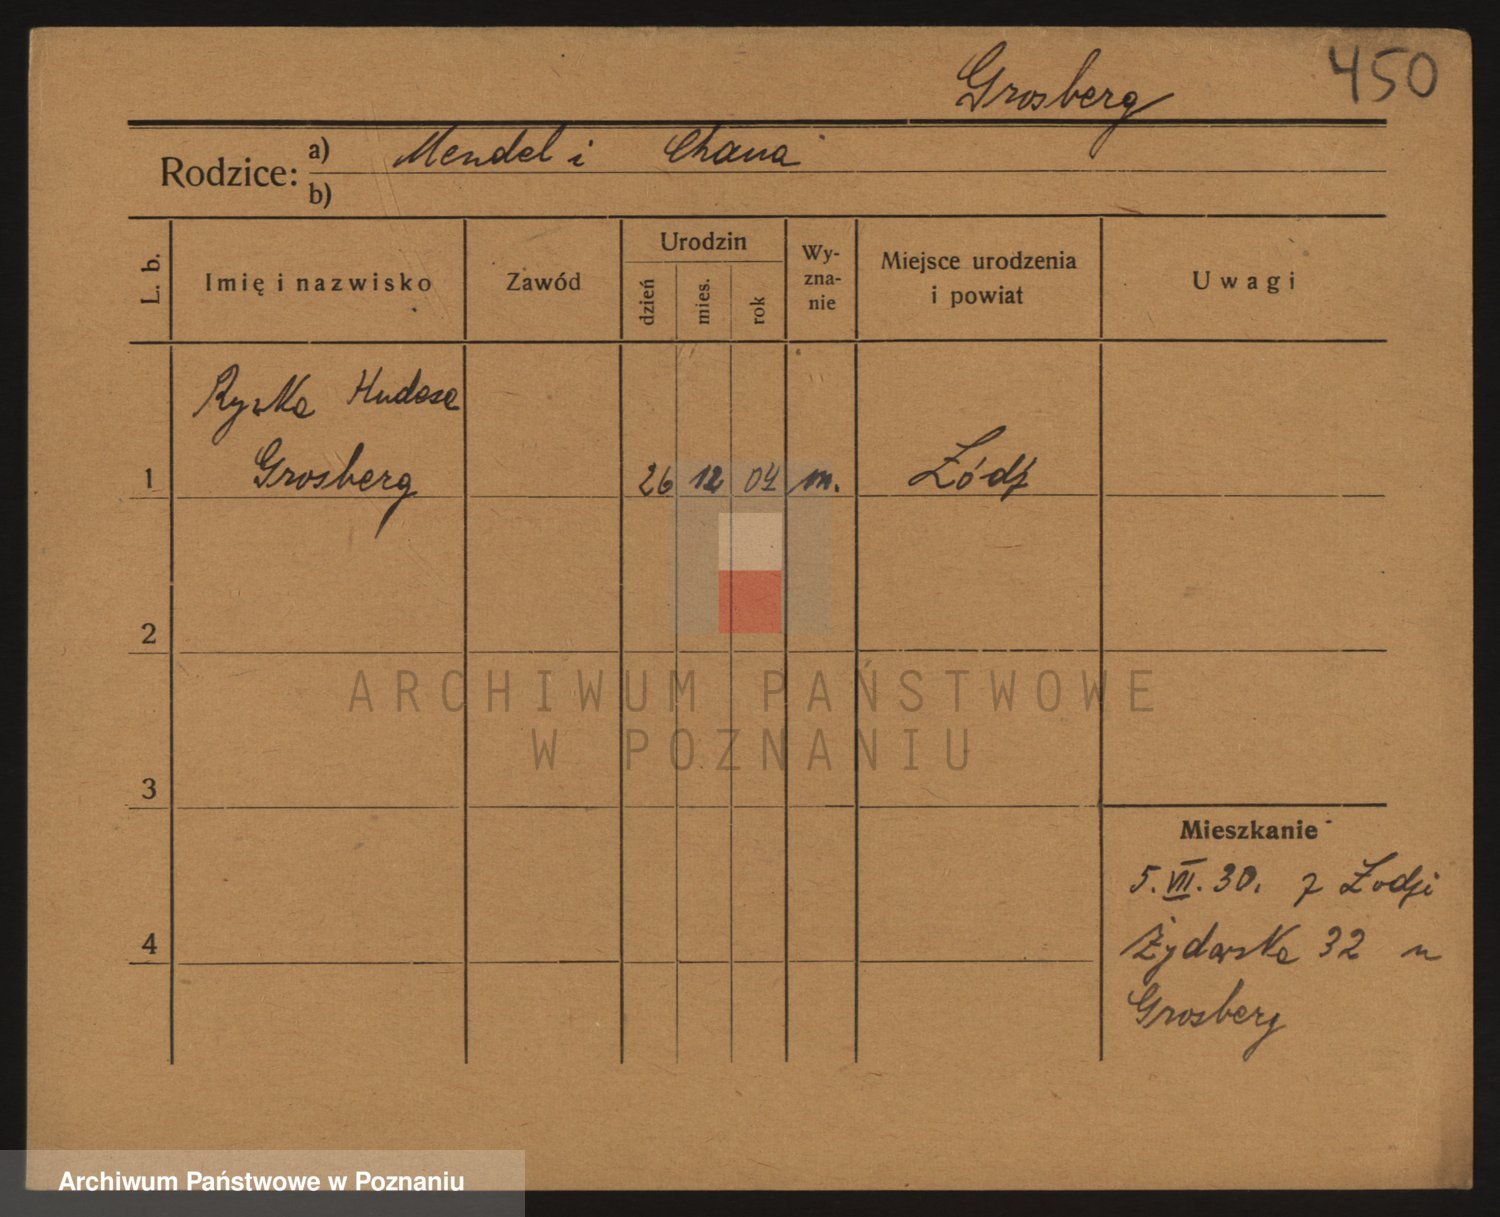 Grosberg 450
Rodzice: a) Mendel i Chana
b)
L. b. Imię i nazwisko Zawód Urodzin dzień mies. rok Wy-zna-nie Miejsce urodzenia i powiat Uwagi
Rywka Hudesa
1 Grosberg 26 12 04 m. Łódź
2
ARCHIWUM PAŃSTWOWE
W POZNANIU
3
Mieszkanie
5.VII.30. z Łodzi
4 32 u
Grosberg
Archiwum Państwowe w Poznaniu